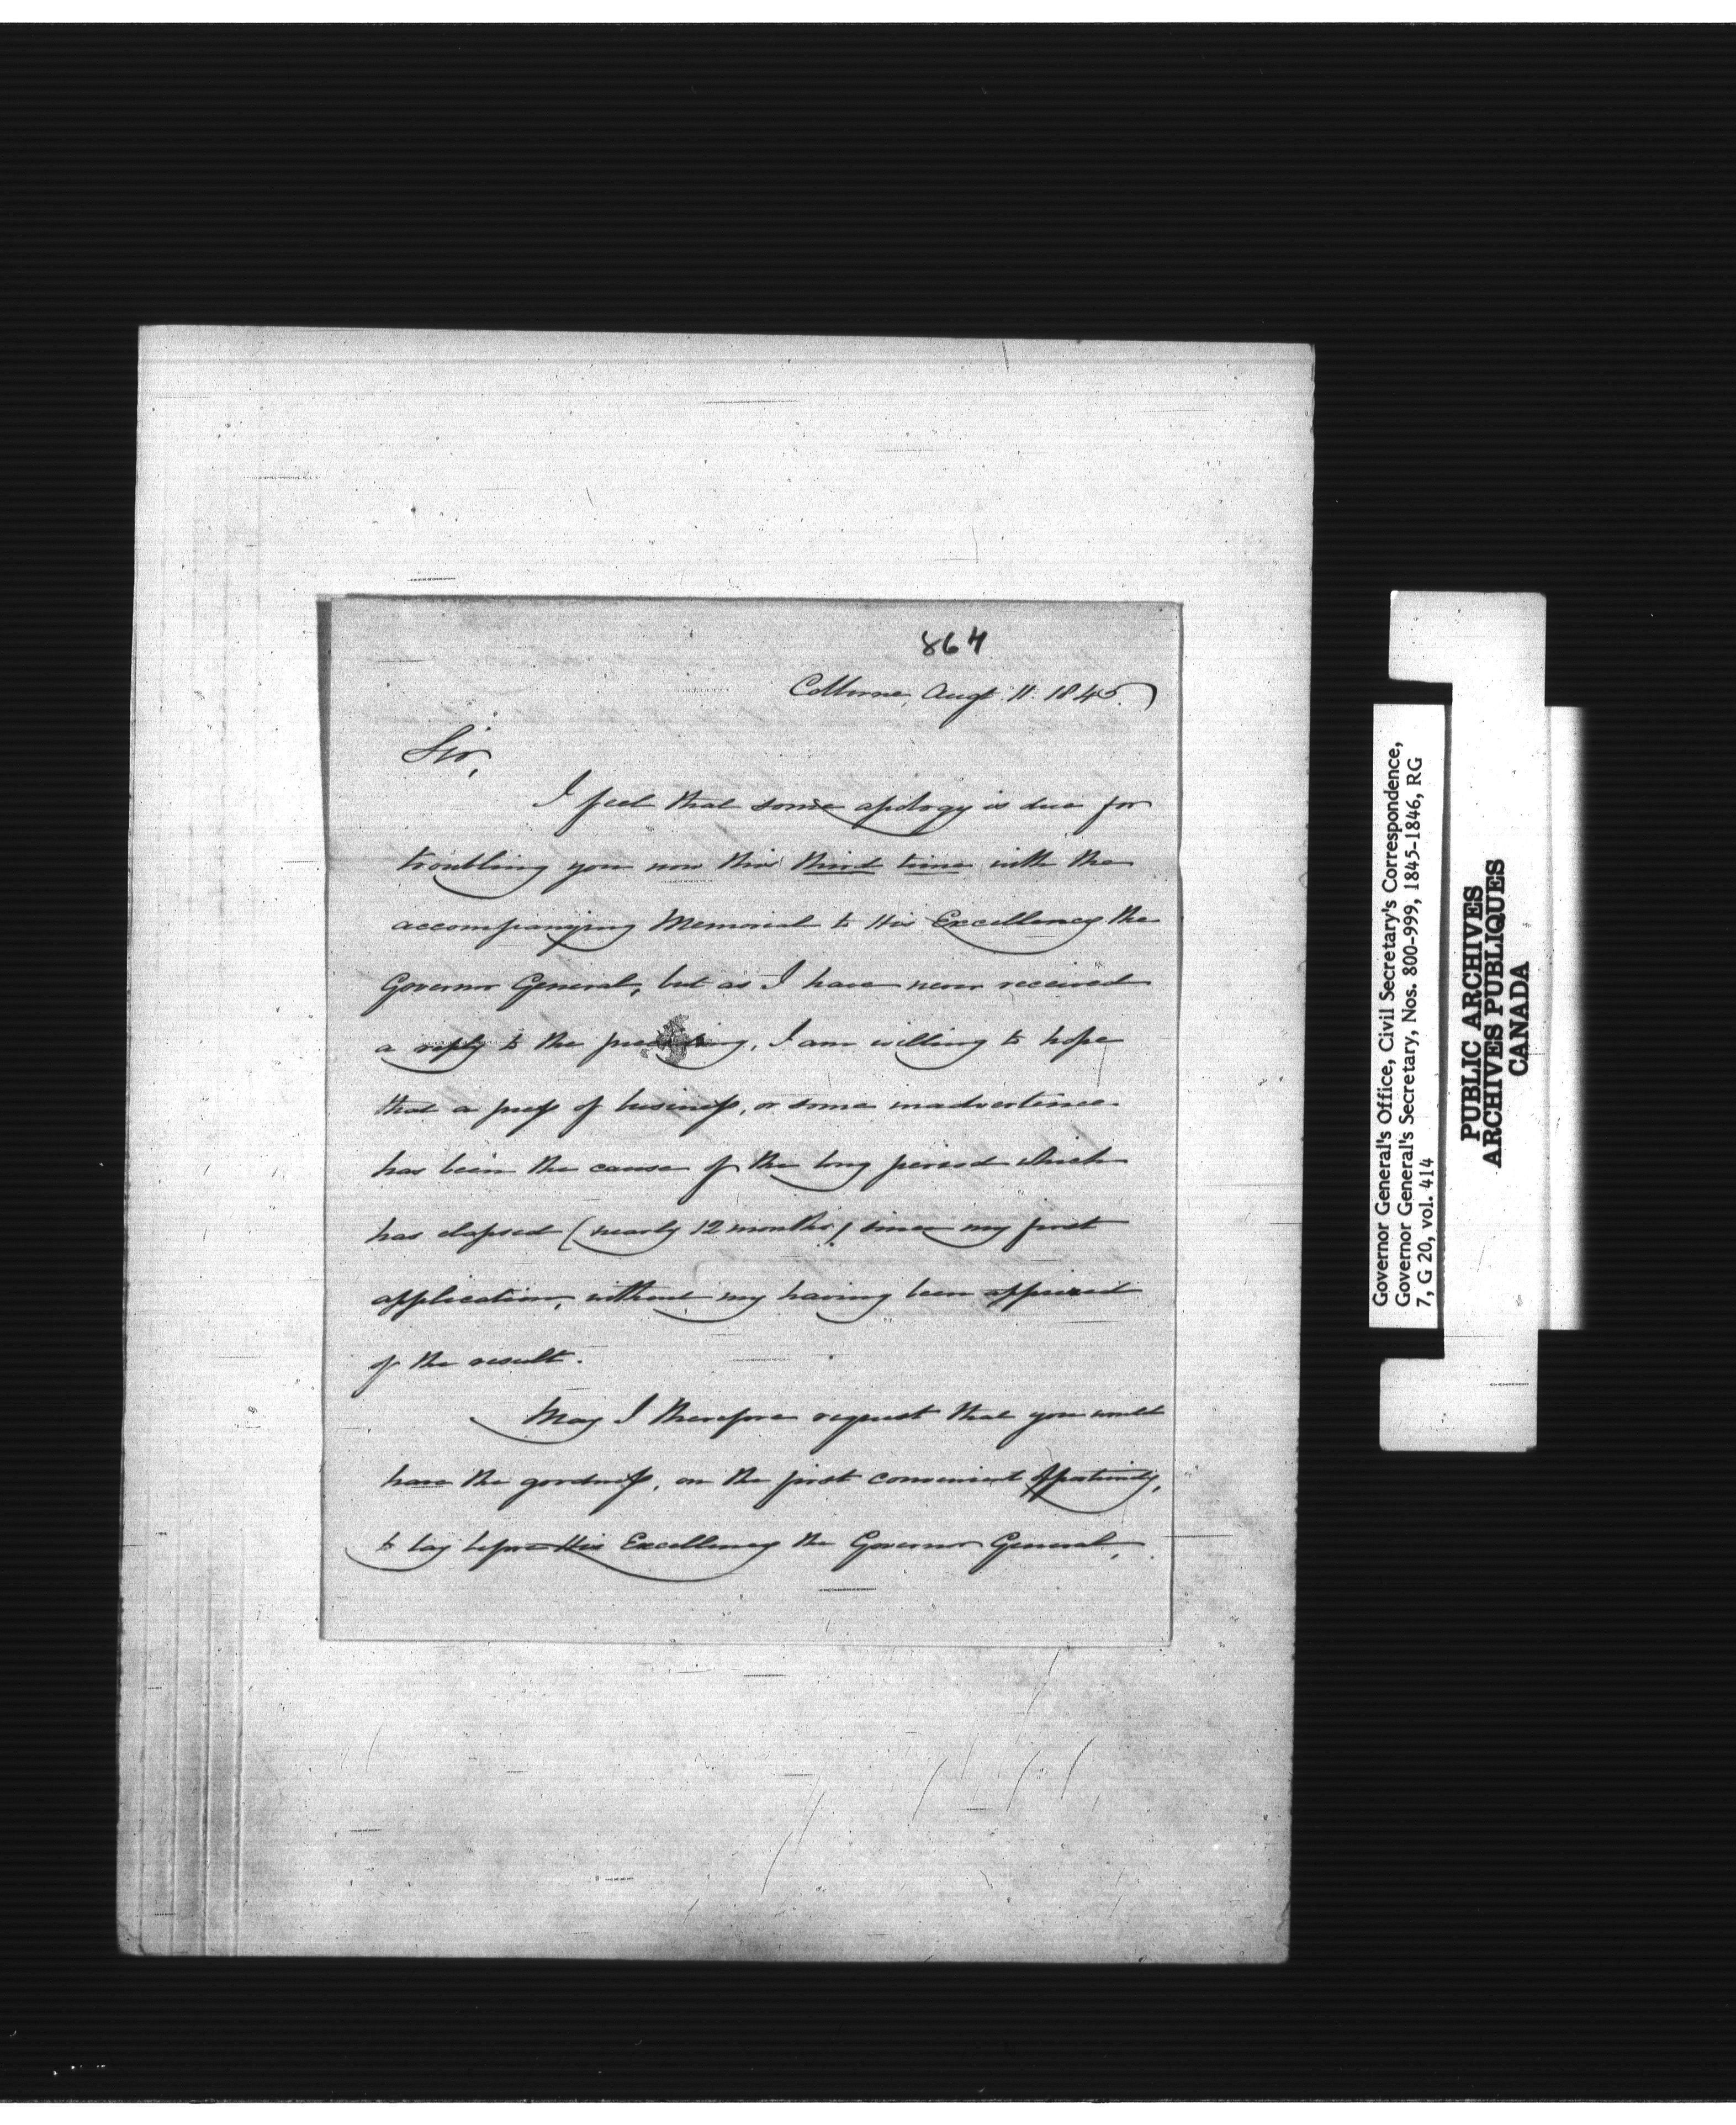 864
Colborne, Augt. 11. 1845.
Sir,
I feel that some apology is due for
troubling you now this third time with the
accompanying Memorial to His Excellency the
Governor General, but as I have never received
a reply to the preceding, I am willing to hope
that a press of business, or some inadvertence
has been the cause of the long period which
has elapsed (nearly 12 months) since my first
application, without my having been apprized
of the result.
May I therefore request that you would
have the goodness, on the first convenient opportunity,
to lay before His Excellency the Governor General,
Governor General's Office, Civil Secretary's Correspondence,
Governor General's Secretary, Nos. 800-999, 1845-1846, RG
7, G 20, vol. 414
PUBLIC ARCHIVES
ARCHIVES PUBLIQUES
CANADA